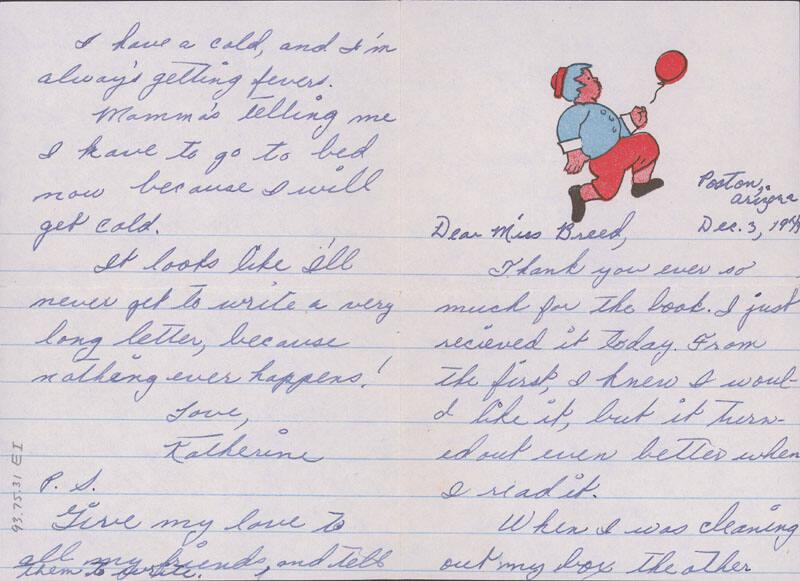 Poston,
Arizona
Dec. 3,
Dear Miss Breed,
Thank you ever so
much for the book. I just
recieved it today. From
the first, I knew I woul-
d like it, but it turn-
ed out even better when
I read it.
When I was cleaning
out my box the other
I have a cold, and I'm
always getting fevers.
Momma's telling me
I have to go to bed
now because I will
get cold.
It looks like I'll
never get to write a very
long letter, because
nothing ever happens!
Love,
Katherine
P. S.
Give my love to
all my friends, and tell
them to write.
93.75.31 EI